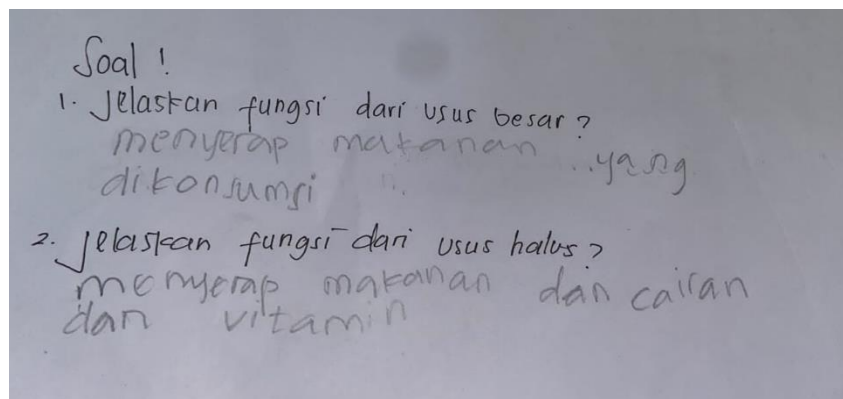 Soal !
1. Jelaskan fungsi dari usus besar ?
menyerap makanan ..yang
dikonsumsi
2. Jelaskan fungsi dari usus halus ?
menyerap makanan dan cairan
dan vitamin